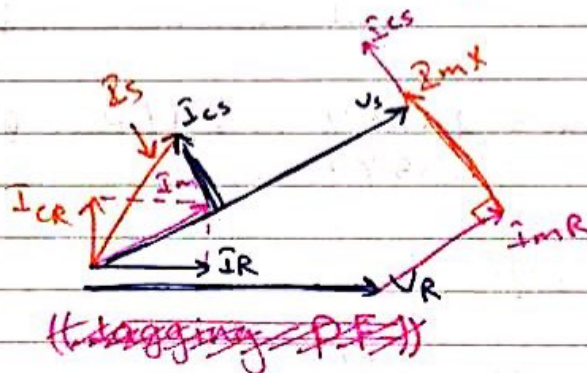 I̅cs
ImX
Is
I̅cs
Vs
Im
I̅CR
ImR
I̅R
VR
((Lagging P.F))